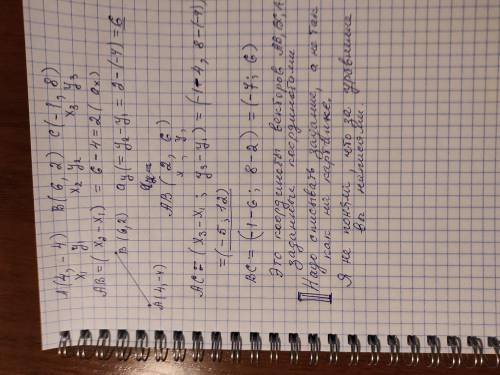 A(4,-4) B(6,2) C(-1,8)
x₁ y₁ x₂ y₂ x₃ y₃
AB=(x₂-x₁) = 6-4=2(ax)
ay(=y₂-y₁=2-(-4)=6
B(6,2)
A(4,-4)
AB(2,6)
x, y,
AC=(x₃-x₁; y₃-y₁)=(-1-4, 8-(-4)
=(-5;12)
BC=(-1-6; 8-2)=(-7;6)
Это координаты векторов AB,BC,A
заданными координатами
Надо списывать задание, а не так
как на картинке.
Я не поняла, что за уравнения
Вы написали